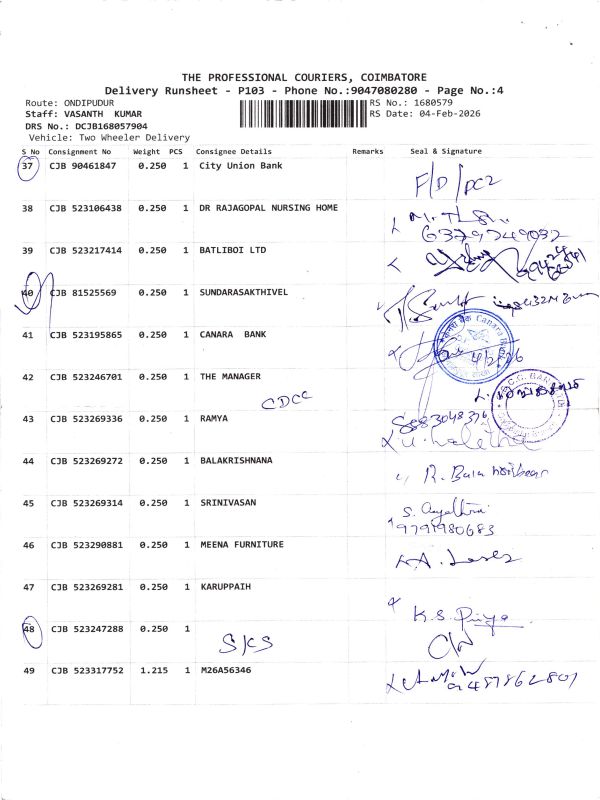 THE PROFESSIONAL COURIERS, COIMBATORE
Delivery Runsheet - P103 - Phone No.:9047080280 - Page No.:4
Route: ONDIPUDUR RS No.: 1680579
Staff: VASANTH KUMAR RS Date: 04-Feb-2026
DRS No.: DCJB168057904
Vehicle: Two Wheeler Delivery
S No Consignment No Weight PCS Consignee Details Remarks Seal & Signature
37 CJB 90461847 0.250 1 City Union Bank F/D/DC2
38 CJB 523106438 0.250 1 DR RAJAGOPAL NURSING HOME
6379749032
39 CJB 523217414 0.250 1 BATLIBOI LTD
40 CJB 81525569 0.250 1 SUNDARASAKTHIVEL
41 CJB 523195865 0.250 1 CANARA BANK 4/2/26
42 CJB 523246701 0.250 1 THE MANAGER
CDCC
43 CJB 523269336 0.250 1 RAMYA
44 CJB 523269272 0.250 1 BALAKRISHNANA R. Bala
45 CJB 523269314 0.250 1 SRINIVASAN S.
9791980683
46 CJB 523290881 0.250 1 MEENA FURNITURE
47 CJB 523269281 0.250 1 KARUPPAIH K.S. Priya
48 CJB 523247288 0.250 1
SKS
49 CJB 523317752 1.215 1 M26A56346
9487862801